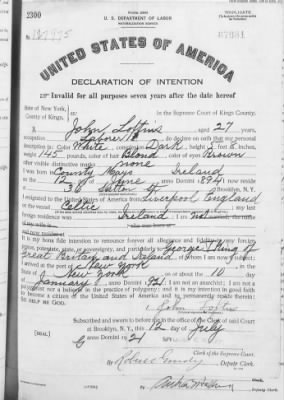 2300
U. S. DEPARTMENT OF LABOR
NATURALIZATION SERVICE
UNITED STATES OF AMERICA
DECLARATION OF INTENTION
Invalid for all purposes seven years after the date hereof
State of New York,
County of Kings,
In the Supreme Court of Kings County:
I, John Loftus aged 27 years,
occupation Laborer, do declare on oath that my personal
description is: Color White, complexion Dark, height 5 feet 8 inches,
weight 145 pounds, color of hair Blond, color of eyes Brown
other visible distinctive marks none
I was born in County Mayo Ireland
on the 12 day of June, anno Domini 1894; I now reside
at 38 Sutton St Brooklyn, N. Y.
I emigrated to the United States of America from Liverpool England
on the vessel Celtic; my last
foreign residence was Ireland; I am not married
It is my bona fide intention to renounce forever all allegiance and fidelity to any foreign
prince, potentate, state, or sovereignty, and particularly to George V King of
Great Britain and Ireland, of whom I am now a subject;
I arrived at the port of New York, in the
State of New York, on or about the 10 day
of January, anno Domini 1921; I am not an anarchist; I am not a
polygamist nor a believer in the practice of polygamy; and it is my intention in good faith
to become a citizen of the United States of America and to permanently reside therein:
SO HELP ME GOD.
John Loftus
Subscribed and sworn to before me in the office of the Clerk of said Court
at Brooklyn, N. Y., this 12 day of July
anno Domini 1921
[SEAL]
Clerk of the Supreme Court.
By, Deputy Clerk.
Clerk.
By, Deputy Clerk.